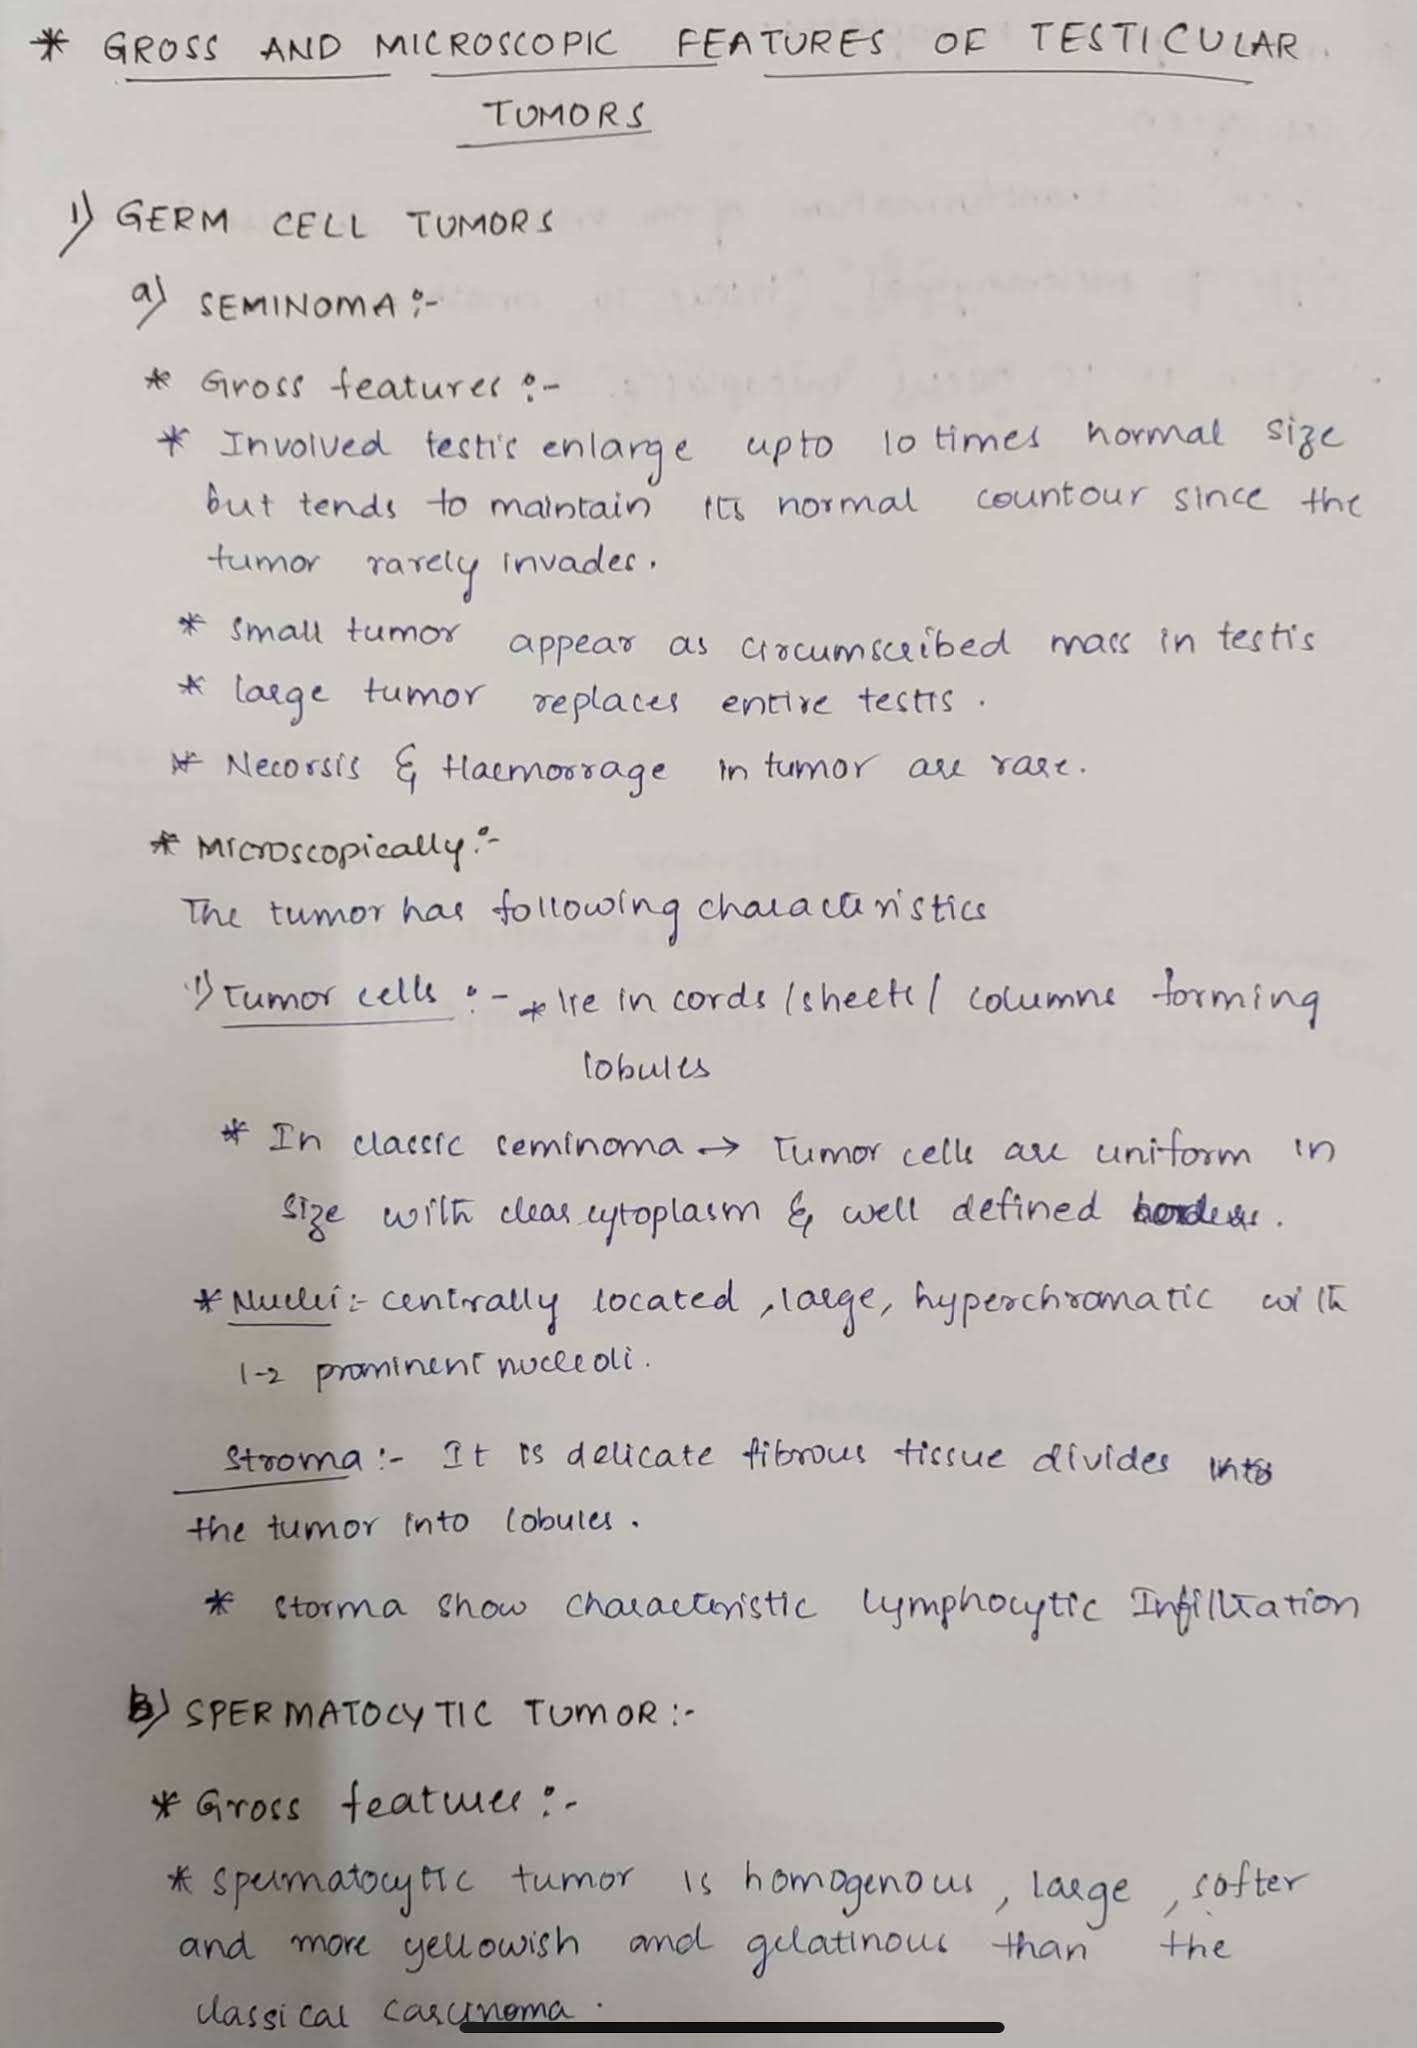 * GROSS AND MICROSCOPIC FEATURES OF TESTICULAR
TUMORS
1) GERM CELL TUMORS
a) SEMINOMA :-
* Gross features :-
* Involved testis enlarge upto 10 times normal size
but tends to maintain its normal countour since the
tumor rarely invades.
* Small tumor appear as circumscribed mass in testis
* large tumor replaces entire testis.
* Necorsis & Haemorrage in tumor are rare.
* Microscopically :-
The tumor has following characteristics
1) Tumor cells :- * lie in cords / sheets / columns forming
lobules
* In classic seminoma → Tumor cells are uniform in
size with clear cytoplasm & well defined borders.
* Nuclei :- centrally located, large, hyperchromatic with
1-2 prominent nucleoli.
Stroma :- It is delicate fibrous tissue divides into
the tumor into lobules.
* storma show characteristic lymphocytic Infiltration
B) SPERMATOCYTIC TUMOR :-
* Gross features :-
* spermatocytic tumor is homogenous, large, softer
and more yellowish and gelatinous than the
classical carcinoma.